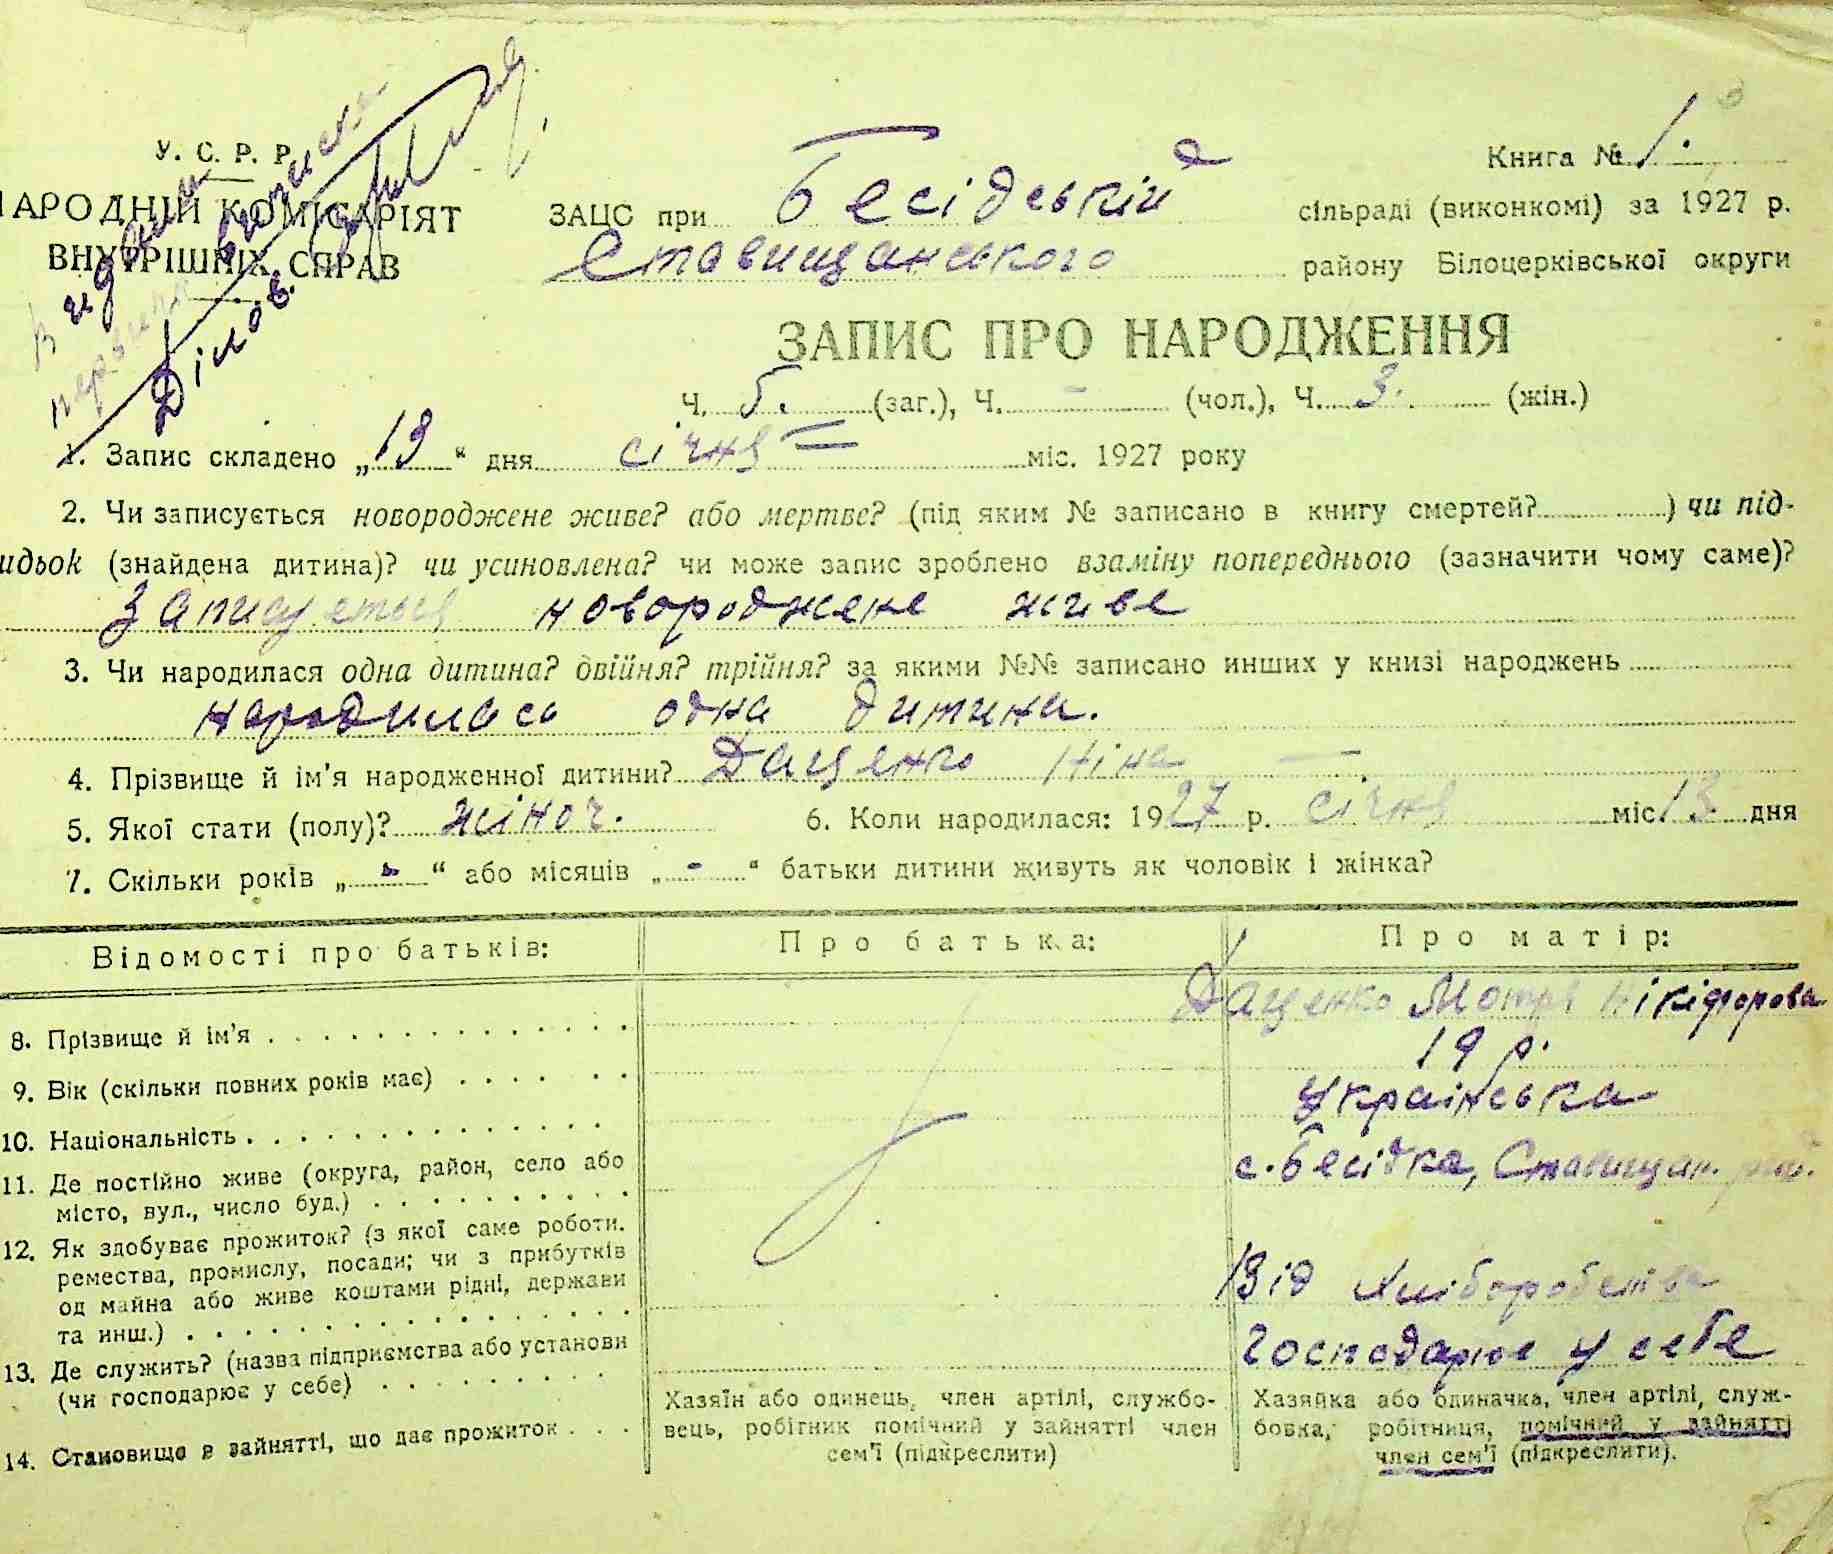 У. С. Р. Р.
НАРОДНІЙ КОМІСАРІЯТ
ВНУТРІШНІХ СПРАВ
Книга № 1.
ЗАЦС при Бесідській сільраді (виконкомі) за 1927 р.
Ставищанського району Білоцерківської округи
ЗАПИС ПРО НАРОДЖЕННЯ
Ч. 5. (заг.), Ч. - (чол.), Ч. 3. (жін.)
1. Запис складено „19“ дня січня міс. 1927 року
2. Чи записується новороджене живе? або мертве? (під яким № записано в книгу смертей? ) чи під-
идьок (знайдена дитина)? чи усиновлена? чи може запис зроблено взаміну попереднього (зазначити чому саме)?
Записуеться новороджене живе
3. Чи народилася одна дитина? двійня? трійня? за якими №№ записано инших у книзі народжень
народилась одна дитина.
4. Прізвище й ім'я народженної дитини? Даценко Ніна —
5. Якої стати (полу)? жіноч. 6. Коли народилася: 1927 р. січня міс. 13 дня
7. Скільки років „ - “ або місяців „ - “ батьки дитини живуть як чоловік і жінка?
Відомості про батьків: Про батька: Про матір:
8. Прізвище й ім'я Даценко Мотря Нікіфорова
9. Вік (скільки повних років має) 19 р.
10. Національність українська
11. Де постійно живе (округа, район, село або
місто, вул., число буд.) с. Бесідка, Ставищан. рай.
12. Як здобуває прожиток? (з якої саме роботи.
ремества, промислу, посади; чи з прибутків
од майна або живе коштами рідні, держави
та инш.) Від хліборобства
13. Де служить? (назва підприємства або установи
(чи господарює у себе) господарює у себе
14. Становище в зайнятті, що дає прожиток
Хазяїн або одинець, член артілі, службо-
вець, робітник помічний у зайнятті член
сем'ї (підкреслити)
Хазяйка або одиначка, член артілі, служ-
бовка, робітниця, помічний у зайнятті
член сем'ї (підкреслити).